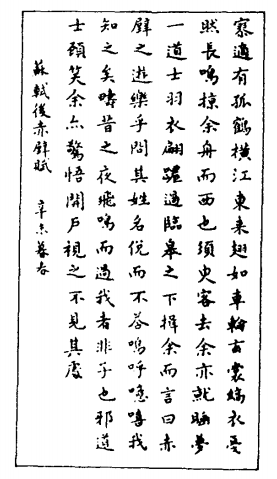 寥適有孤鶴橫江東來翅如車輪玄裳縞衣戛
然長鳴掠余舟而西也須臾客去余亦就睡夢
一道士羽衣翩躚過臨皋之下揖余而言曰赤
壁之遊樂乎問其姓名俛而不答嗚呼噫嘻我
知之矣疇昔之夜飛鳴而過我者非子也邪道
士顧笑余亦驚悟開戶視之不見其處
蘇軾後赤壁賦 辛未暮春